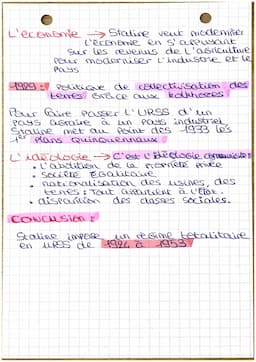 L'économie → Staline veut moderniser
l'économie en s'appuyant
sur les revenus de l'agriculture
pour moderniser l'industrie et le
pays
1929 : Politique de collectivisation des
terres grâce aux kolkhozes
Pour faire passer l'URSS d'un
pays agraire à un pays industriel,
Staline met au point dès 1933 les
1er plans quinquennaux
L'idéologie → C'est l'idéologie communiste :
• l'abolition de la propriété privée
• société égalitaire
• nationalisation des usines, des
terres : Tout appartient à l'État.
• disparition des classes sociales.
CONCLUSION :
Staline impose un régime totalitaire
en URSS de 1924 à 1953